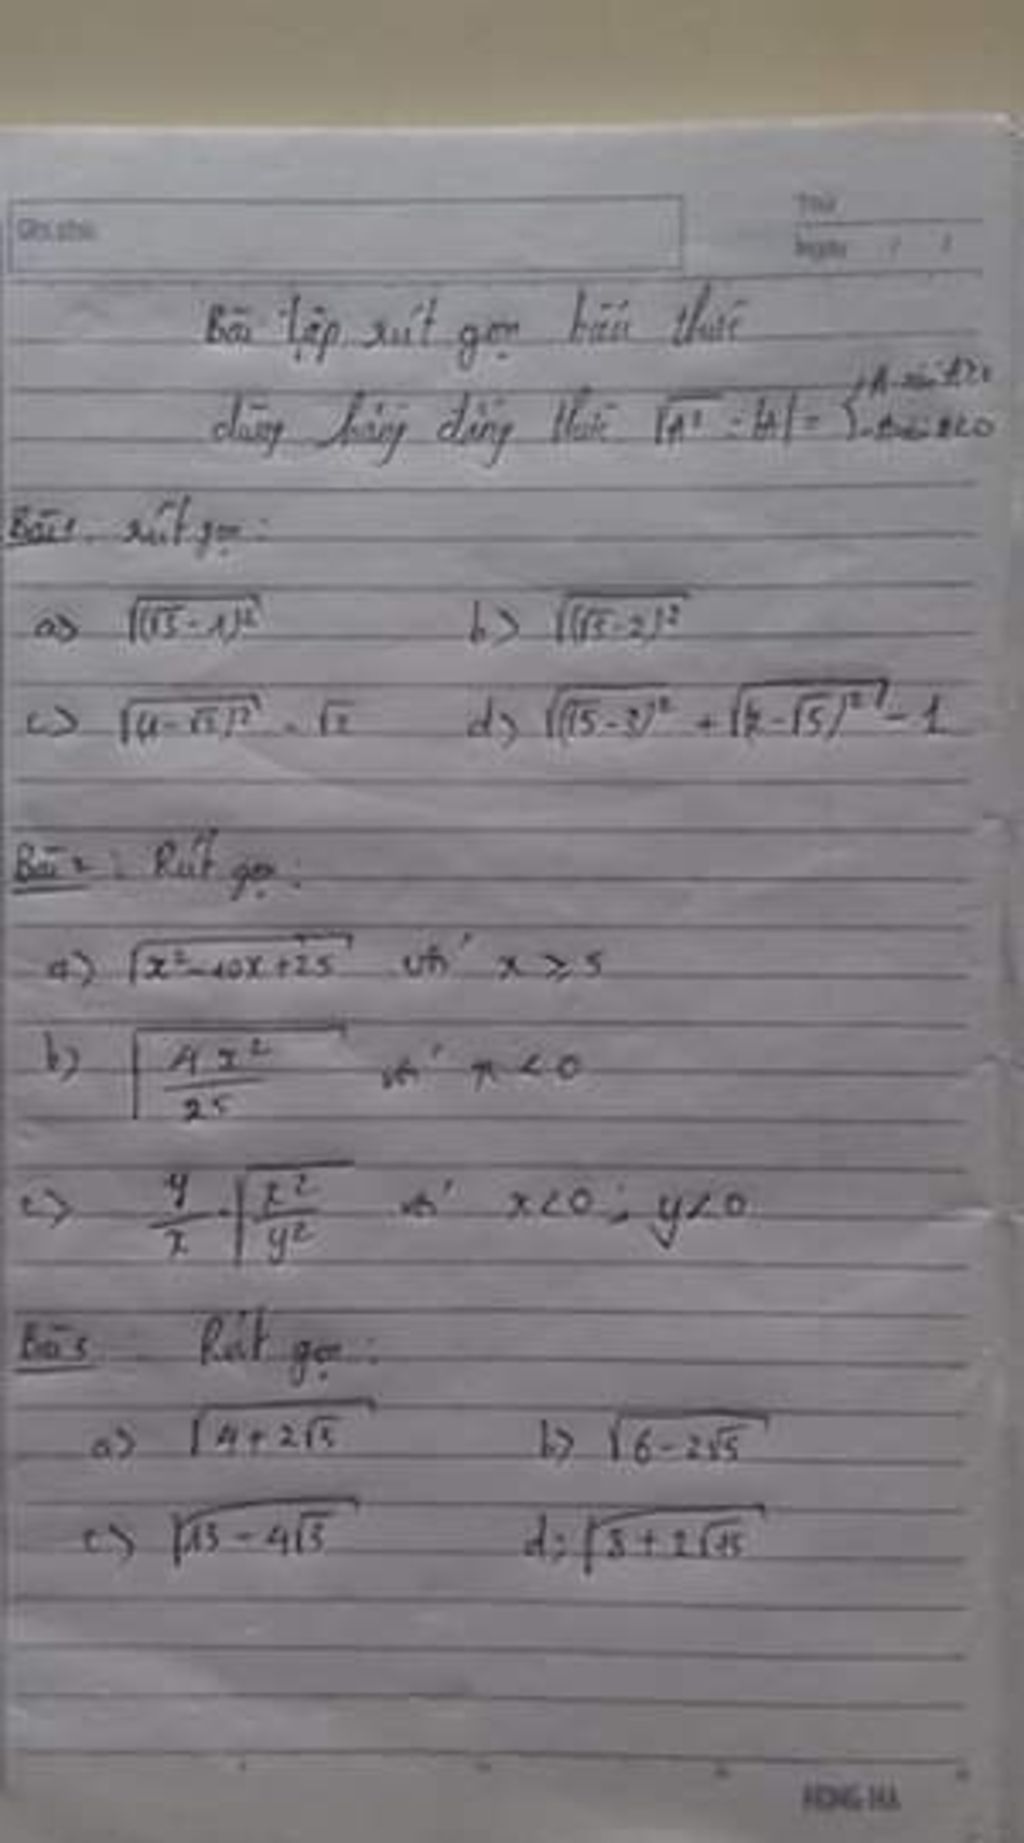 Ghi chú:
Thứ
Ngày / /
Bài tập rút gọn biểu thức
dùng hằng đẳng thức √A² = |A| = { A nếu A≥0
-A nếu A<0
Bài 1. rút gọn:
a) √(√5-1)² b) √(√5-2)²
c) √(4-√2)² - √2 d) √(√5-3)² + √(2-√5)² - 1
Bài 2: Rút gọn:
a) √x²-10x+25 với x ≥ 5
b) √4x²/25 với x < 0
c) y/x . √x²/y² với x<0; y<0
Bài 3 Rút gọn:
a) √4+2√3 b) √6-2√5
c) √13-4√3 d) √8+2√15
HONG HA